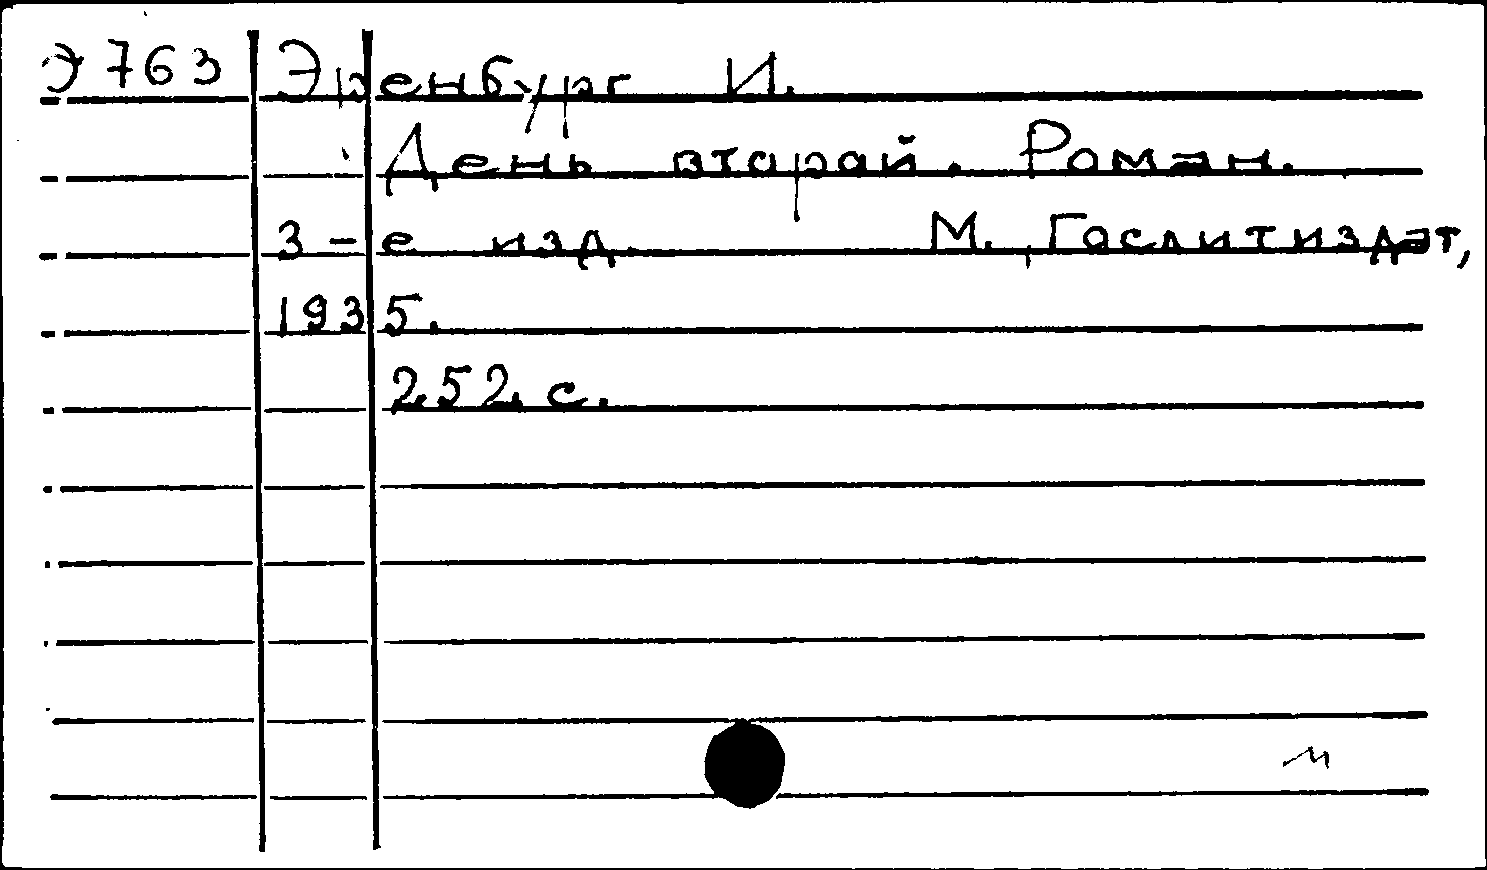 Э 763 Эренбург И.
День второй. Роман.
3-е изд. М., Гослитиздат,
1935.
252 с.